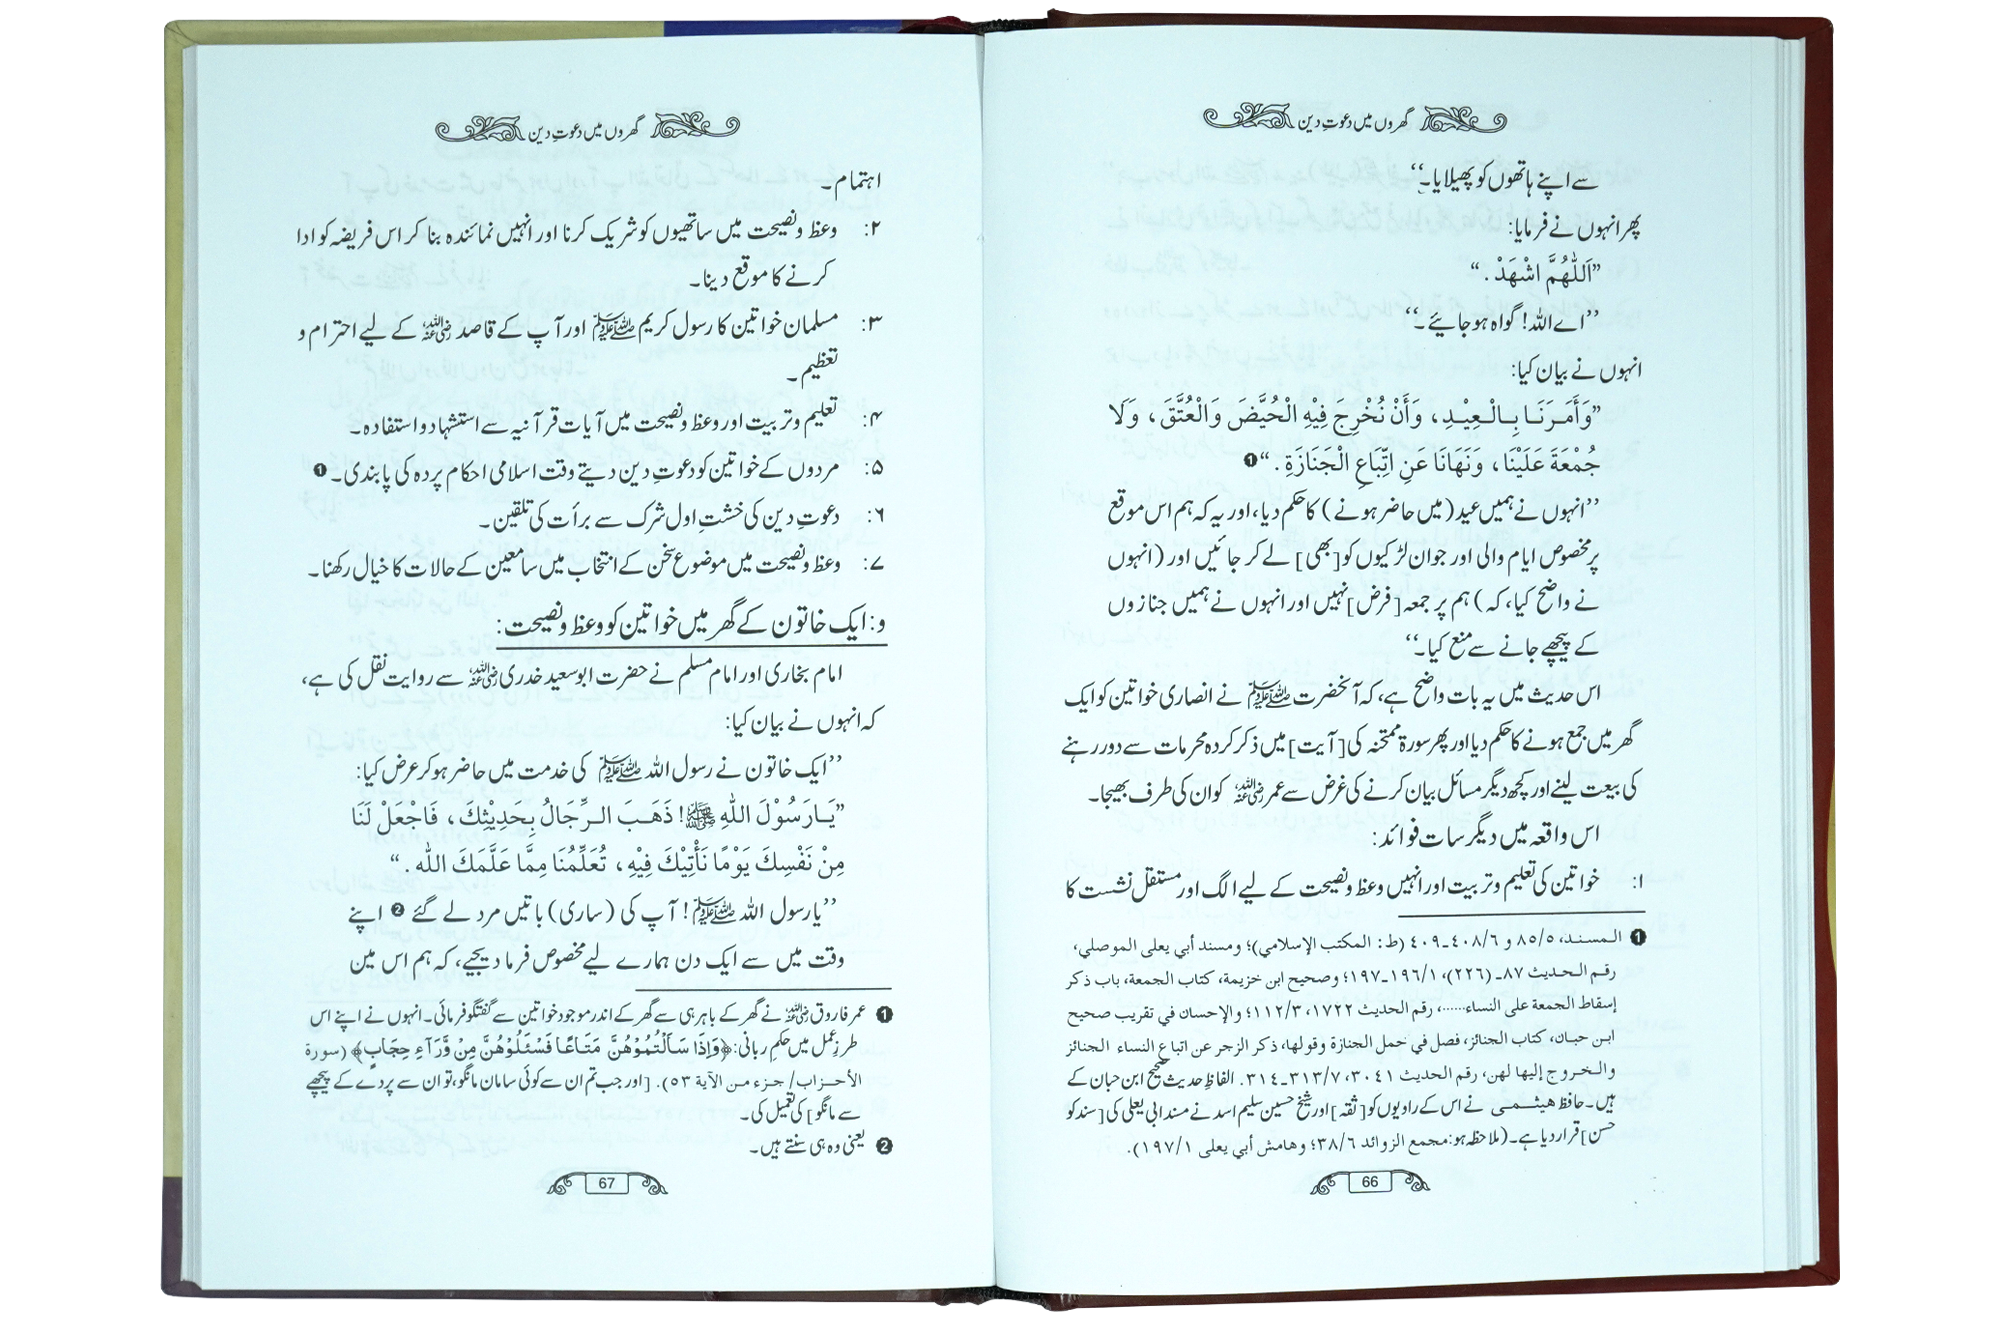 گھروں میں دعوتِ دین
سے اپنے ہاتھوں کو پھیلایا۔‘‘
پھر انہوں نے فرمایا:
”اَللّٰهُمَّ اشْهَدْ.“
’’اے اللہ! گواہ ہو جائیے۔‘‘
انہوں نے بیان کیا:
”وَأَمَرَنَا بِالْعِيْدِ، وَأَنْ نُخْرِجَ فِيْهِ الْحُيَّضَ وَالْعُتَّقَ، وَلَا
جُمْعَةَ عَلَيْنَا، وَنَهَانَا عَنِ اتِّبَاعِ الْجَنَازَةِ.“ ❶
’’انہوں نے ہمیں عید (میں حاضر ہونے) کا حکم دیا، اور یہ کہ ہم اس موقع
پر مخصوص ایام والی اور جوان لڑکیوں کو [بھی] لے کر جائیں اور (انہوں
نے واضح کیا، کہ) ہم پر جمعہ [فرض] نہیں اور انہوں نے ہمیں جنازوں
کے پیچھے جانے سے منع کیا۔‘‘
اس حدیث میں یہ بات واضح ہے، کہ آنحضرت ﷺ نے انصاری خواتین کو ایک
گھر میں جمع ہونے کا حکم دیا اور پھر سورۃ ممتحنہ کی [آیت] میں ذکر کردہ محرمات سے دور رہنے
کی بیعت لینے اور کچھ دیگر مسائل بیان کرنے کی غرض سے عمر رضی اللہ عنہ کو ان کی طرف بھیجا۔
اس واقعہ میں دیگر سات فوائد:
۱: خواتین کی تعلیم و تربیت اور انہیں وعظ و نصیحت کے لیے الگ اور مستقل نشست کا
❶ المسند، ۸۵/۵ و ۴۰۸/۶۔۴۰۹ (ط: المكتب الإسلامي)؛ ومسند أبي يعلى الموصلي،
رقم الحديث ۸۷۔ (۲۲۶)، ۱۹۶/۱۔۱۹۷؛ وصحيح ابن خزيمة، كتاب الجمعة، باب ذكر
إسقاط الجمعة على النساء......، رقم الحديث ۱۷۲۲، ۱۱۲/۳؛ والإحسان في تقريب صحيح
ابن حبان، كتاب الجنائز، فصل في حمل الجنازة وقولها، ذكر الزجر عن اتباع النساء الجنائز
والخروج إليها لهن، رقم الحديث ۳۰۴۱، ۳۱۳/۷۔۳۱۴. الفاظِ حدیث صحیح ابن حبان کے
ہیں۔ حافظ هیثمی نے اس کے راویوں کو [ثقہ] اور شیخ حسین سلیم اسد نے مسند ابی یعلیٰ کی [سند کو
حسن] قرار دیا ہے۔ (ملاحظہ ہو: مجمع الزوائد ۳۸/۶؛ وهامش أبي يعلى ۱۹۷/۱).
66
گھروں میں دعوتِ دین
اہتمام۔
۲: وعظ و نصیحت میں ساتھیوں کو شریک کرنا اور انہیں نمائندہ بنا کر اس فریضہ کو ادا
کرنے کا موقع دینا۔
۳: مسلمان خواتین کا رسول کریم ﷺ اور آپ کے قاصد رضی اللہ عنہ کے لیے احترام و
تعظیم۔
۴: تعلیم و تربیت اور وعظ و نصیحت میں آیات قرآنیہ سے استشہاد و استفادہ۔
۵: مردوں کے خواتین کو دعوتِ دین دیتے وقت اسلامی احکام پردہ کی پابندی۔ ❶
۶: دعوتِ دین کی خشتِ اول شرک سے برأت کی تلقین۔
۷: وعظ و نصیحت میں موضوع سخن کے انتخاب میں سامعین کے حالات کا خیال رکھنا۔
و: ایک خاتون کے گھر میں خواتین کو وعظ و نصیحت:
امام بخاری اور امام مسلم نے حضرت ابو سعید خدری رضی اللہ عنہ سے روایت نقل کی ہے،
کہ انہوں نے بیان کیا:
’’ایک خاتون نے رسول اللہ ﷺ کی خدمت میں حاضر ہو کر عرض کیا:
”يَا رَسُوْلَ اللهِ ﷺ! ذَهَبَ الرِّجَالُ بِحَدِيْثِكَ، فَاجْعَلْ لَنَا
مِنْ نَفْسِكَ يَوْمًا نَأْتِيْكَ فِيْهِ، تُعَلِّمُنَا مِمَّا عَلَّمَكَ الله.“
’’یا رسول اللہ ﷺ! آپ کی (ساری) باتیں مرد لے گئے ❷ اپنے
وقت میں سے ایک دن ہمارے لیے مخصوص فرما دیجیے، کہ ہم اس مین
❶ عمر فاروق رضی اللہ عنہ نے گھر کے باہر ہی سے گھر کے اندر موجود خواتین سے گفتگو فرمائی۔ انہوں نے اپنے اس
طرزِ عمل میں حکم ربانی: ﴿وَإِذَا سَأَلْتُمُوْهُنَّ مَتَاعًا فَسْئَلُوْهُنَّ مِنْ وَّرَآءِ حِجَابٍ﴾ (سورة
الأحزاب/ جزء من الآية ۵۳). [اور جب تم ان سے کوئی سامان مانگو، تو ان سے پردے کے پیچھے
سے مانگو] کی تعمیل کی۔
❷ یعنی وہ ہی سنتے ہیں۔
67